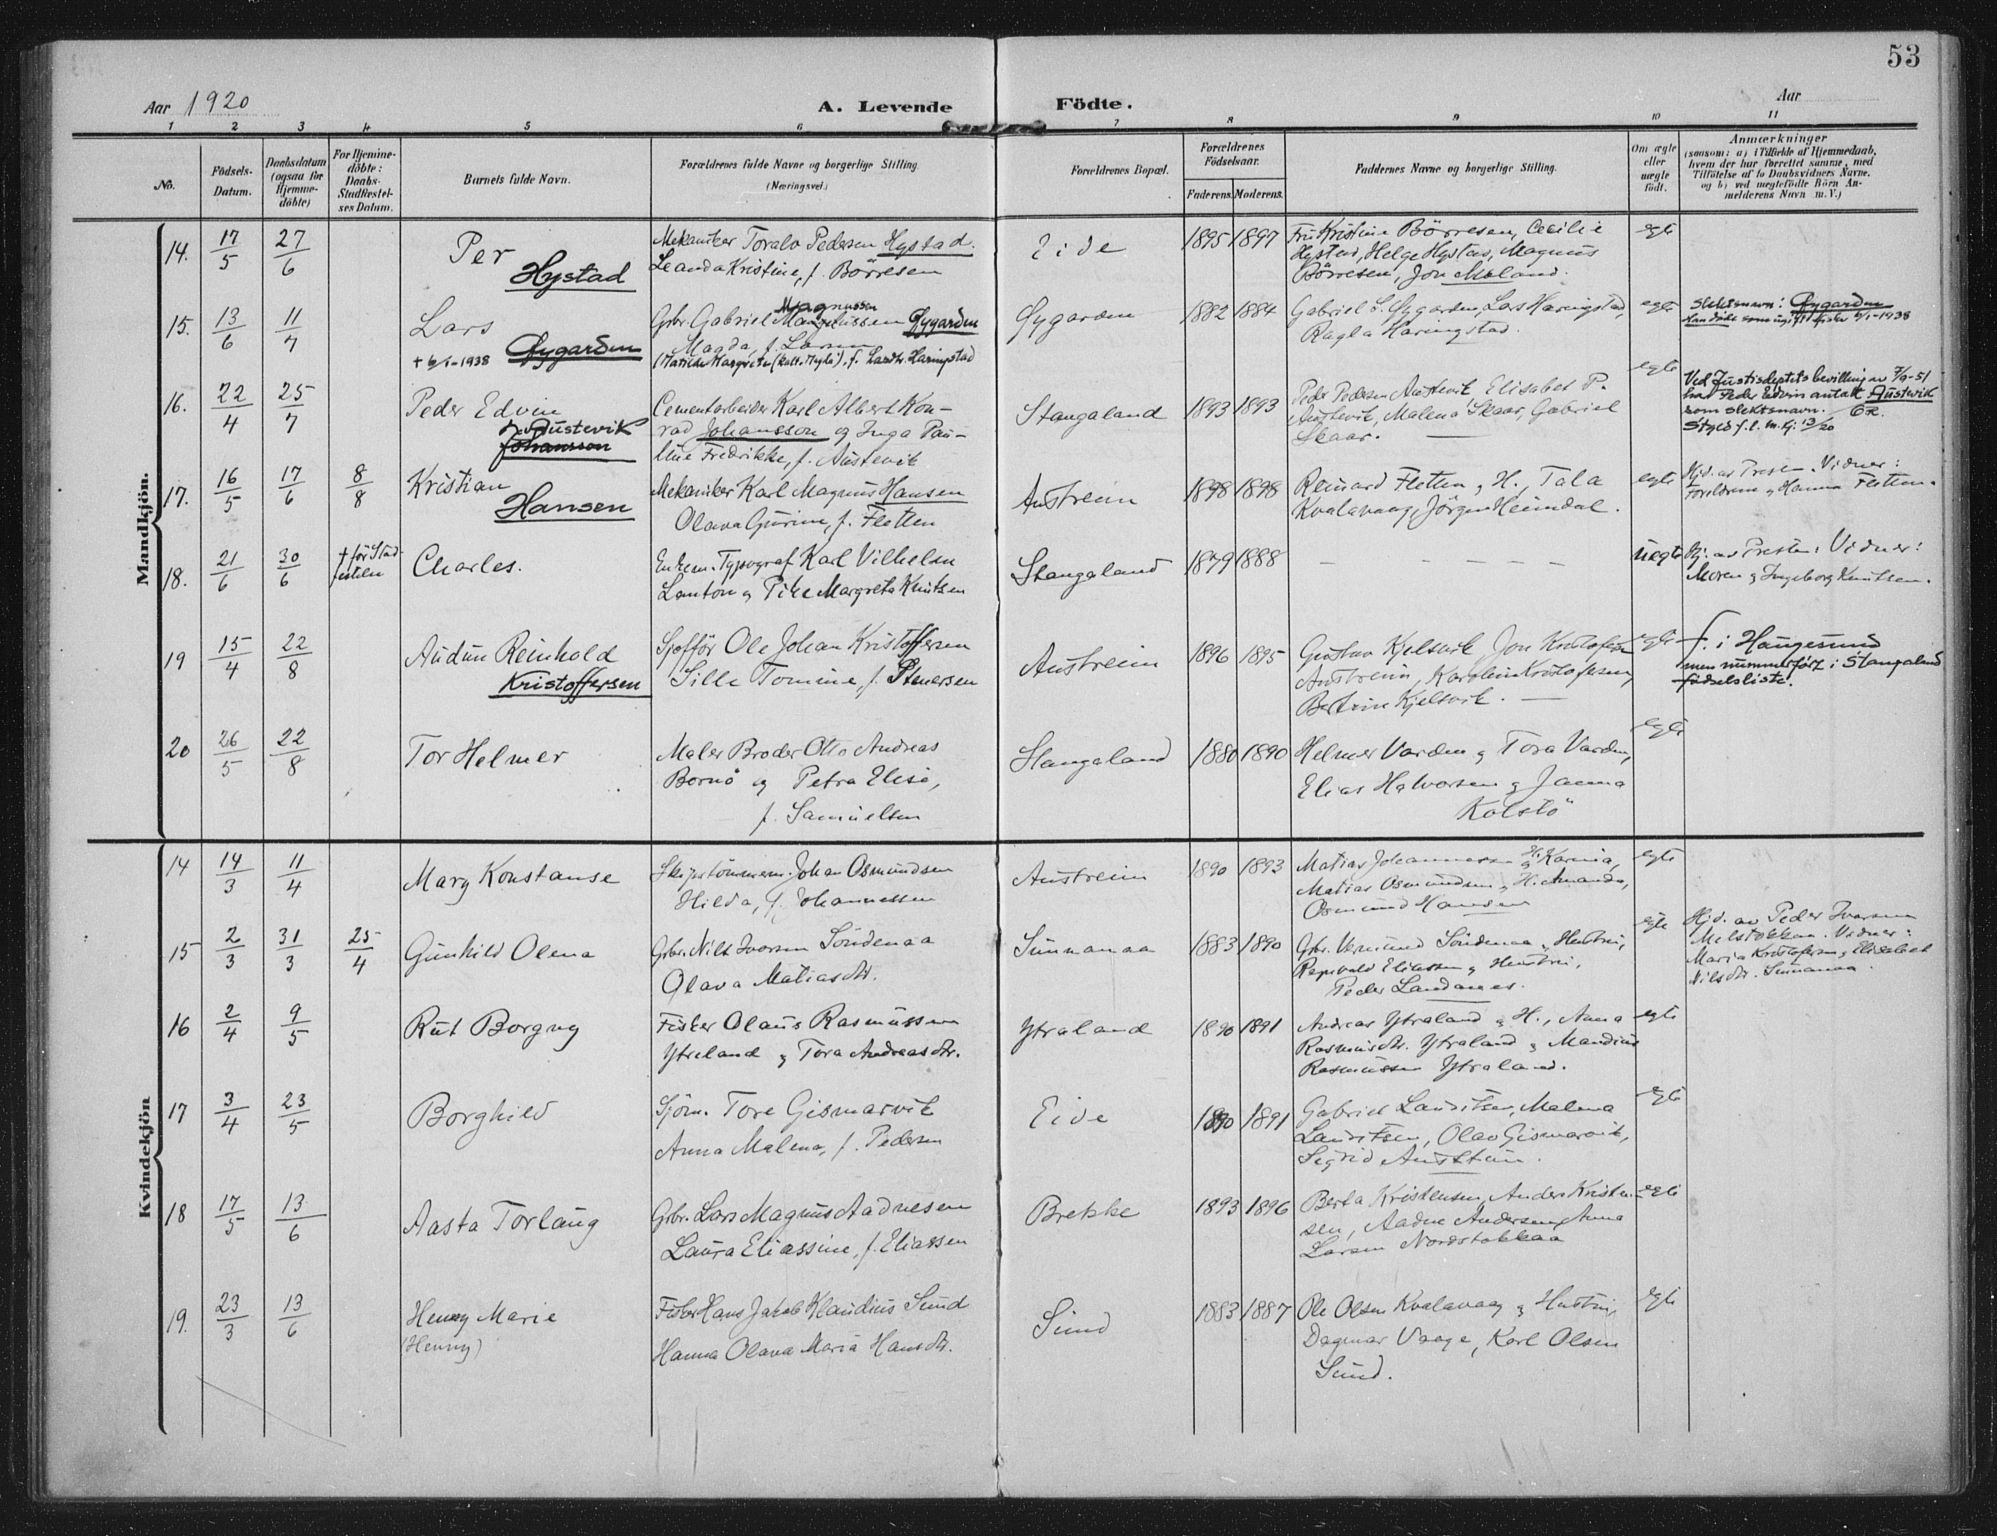 53
Aar 1920
A. Levende Födte.
Aar
1 2 3 4 5 6 7 8 9 10 11
No.
Födsels-Datum.
Daabsdatum (ogsaa for Hjemme-döbte)
For Hjemme-döbte: Daabs-Stadfæstel-ses Datum.
Barnets fulde Navn.
Forældrenes fulde Navne og borgerlige Stilling.
(Næringsvei.)
Forældrenes Bopæl.
Forældrenes Födselsaar.
Faderens. Moderens.
Faddernes Navne og borgerlige Stilling.
Om ægte eller uægte födt.
Anmærkninger
(saasom: a) i Tilfælde af Hjemmedaab,
hvem der har forrettet samme, med
Tilföielse af to Daabsvidners Navne,
og b) ved uægtefödte Börn An-
melderens Navn m. V.)
Mandkjön.
14. 17/5 27/6 Per Hystad
Mekaniker Toralv Pedersen Hystad.
Leanda Kristine, f. Börresen
Eide 1895 1897
Fru Kristine Börresen, Cecilie
Hystad, Helge Hystad, Magnus
Börresen, Jon Meland.
egte
15. 13/6 11/7 Lars Øygarden
+ 6/1-1938
Grbr. Gabriel Magnussen Øygarden
Magnussen
Magda, f. Larsen
(Matilde Margrete (kalt Magda), f. Larsdtr. Haringstad
Øygarden 1882 1884
Gabriel S. Øygarden, Lars Haringstad,
Ragla Haringstad.
egte
Slektsnavn: Øygarden
Han döde som ugift fisker 6/1-1938
16. 22/4 25/7 Peder Edvin
Austevik
Johansson
Cementarbeider Karl Albert Kon-
rad Johansson og Inga Pau-
line Fredrikke, f. Austevik
Stangaland 1893 1893
Peder Pedersen Austevik Elisabet P.
Austevik, Malena Skaar, Gabriel
Skaar.
egte
Ved Justisdeptets bevilling av 7/9-51
har Peder Edvin antatt Austevik
som slektsnavn.
17. 16/5 17/6 8/8 Kristian Hansen
Mekaniker Karl Magnus Hansen
Olava Gurine, f. Fletten
Austreim 1898 1898
Reinard Fletten & H., Tala
Kvalavaag, Jörgen Heimdal.
egte
Hjd. av Presten. Vidner:
Foreldrene & Hanna Fletten.
18. 21/6 30/6 + för Stad-
festelen
Charles.
Enkem. Typograf Karl Vilhelm
Lanton & Pike Margreta Knutsen
Stangaland 1879 1888
– – – – –
uegte
Hj. av Presten: Vidner:
Moren & Ingeborg Knutsen.
19 15/4 22/8 Audun Reinhold
Kristoffersen
Sjofför Ole Johan Kristoffersen
Sille Tomine, f. Stenersen
Austreim 1896 1895
Gustav Kjelsvik, Jon Kristofersen
Austreim, Karoline Kristofersen,
Bertine Kjelsvik.
egte
f. i Haugesund
men nummerfört i Stangaland
födselsliste.
20 26/5 22/8 Tor Helmer
Maler Broder Otto Andreas
Bornö og Petra Elise,
f. Samuelsen
Stangaland 1880 1890
Helmer Varden & Tora Varden,
Elias Halvorsen & Janna
Kolstö
egte
Kvindekjön
14 14/3 11/4 Mary Konstanse
Skipstömmerm. Johan Osmundsen
Hilda, f. Johannessen
Austreim 1890 1893
Matias Johannessen & H. Karina,
Matias Osmundsen & H. Amanda,
Osmund Hansen
egte
15 2/3 31/3 25/4 Gunhild Olena
Grbr. Nils Ivarsen Söndenaa
Olava Matiasdtr.
Sunnanaa 1883 1890
Grbr. Vermund Söndenaa & Hustru,
Regnvald Eliassen & Hustru,
Peder Landanes.
egte
Hjd. av Peder Ivarsen
Melstokken. Vidner:
Maria Kristofersen & Elisabet
Nilsdtr. Sunnanaa.
16 2/4 9/5 Rut Borgny
Fisker Olaus Rasmussen
Ytreland & Tora Andreasdtr.
Ytraland 1890 1891
Andreas Ytraland & H., Anna
Rasmusdtr. Ytraland & Mandius
Rasmussen Ytraland.
egte
17 3/4 23/5 Borghild
Sjöm. Tore Gismarvik
Anna Malena, f. Pedersen
Eide 1890 1891
Gabriel Lauritsen, Malena
Lauritsen, Olav Gismarvik,
Sigrid Austtun.
egte
18 17/5 13/6 Aasta Torlaug
Grbr. Lars Magnus Aadnesen
Laura Eliassine, f. Eliassen
Brekke 1893 1896
Berta Kristensen, Anders Kristen-
sen, Aadne Andersen, Anna
Larsen Nordstokkaa
egte
19. 23/3 13/6 Henny Marie
(Henny)
Fisker Hans Jakob Klaudius Sund
Hanna Olava Maria Hansdtr.
Sund 1883 1887
Ole Olsen Kvalavaag & Hustru,
Dagmar Vaage, Karl Olsen
Sund.
egte